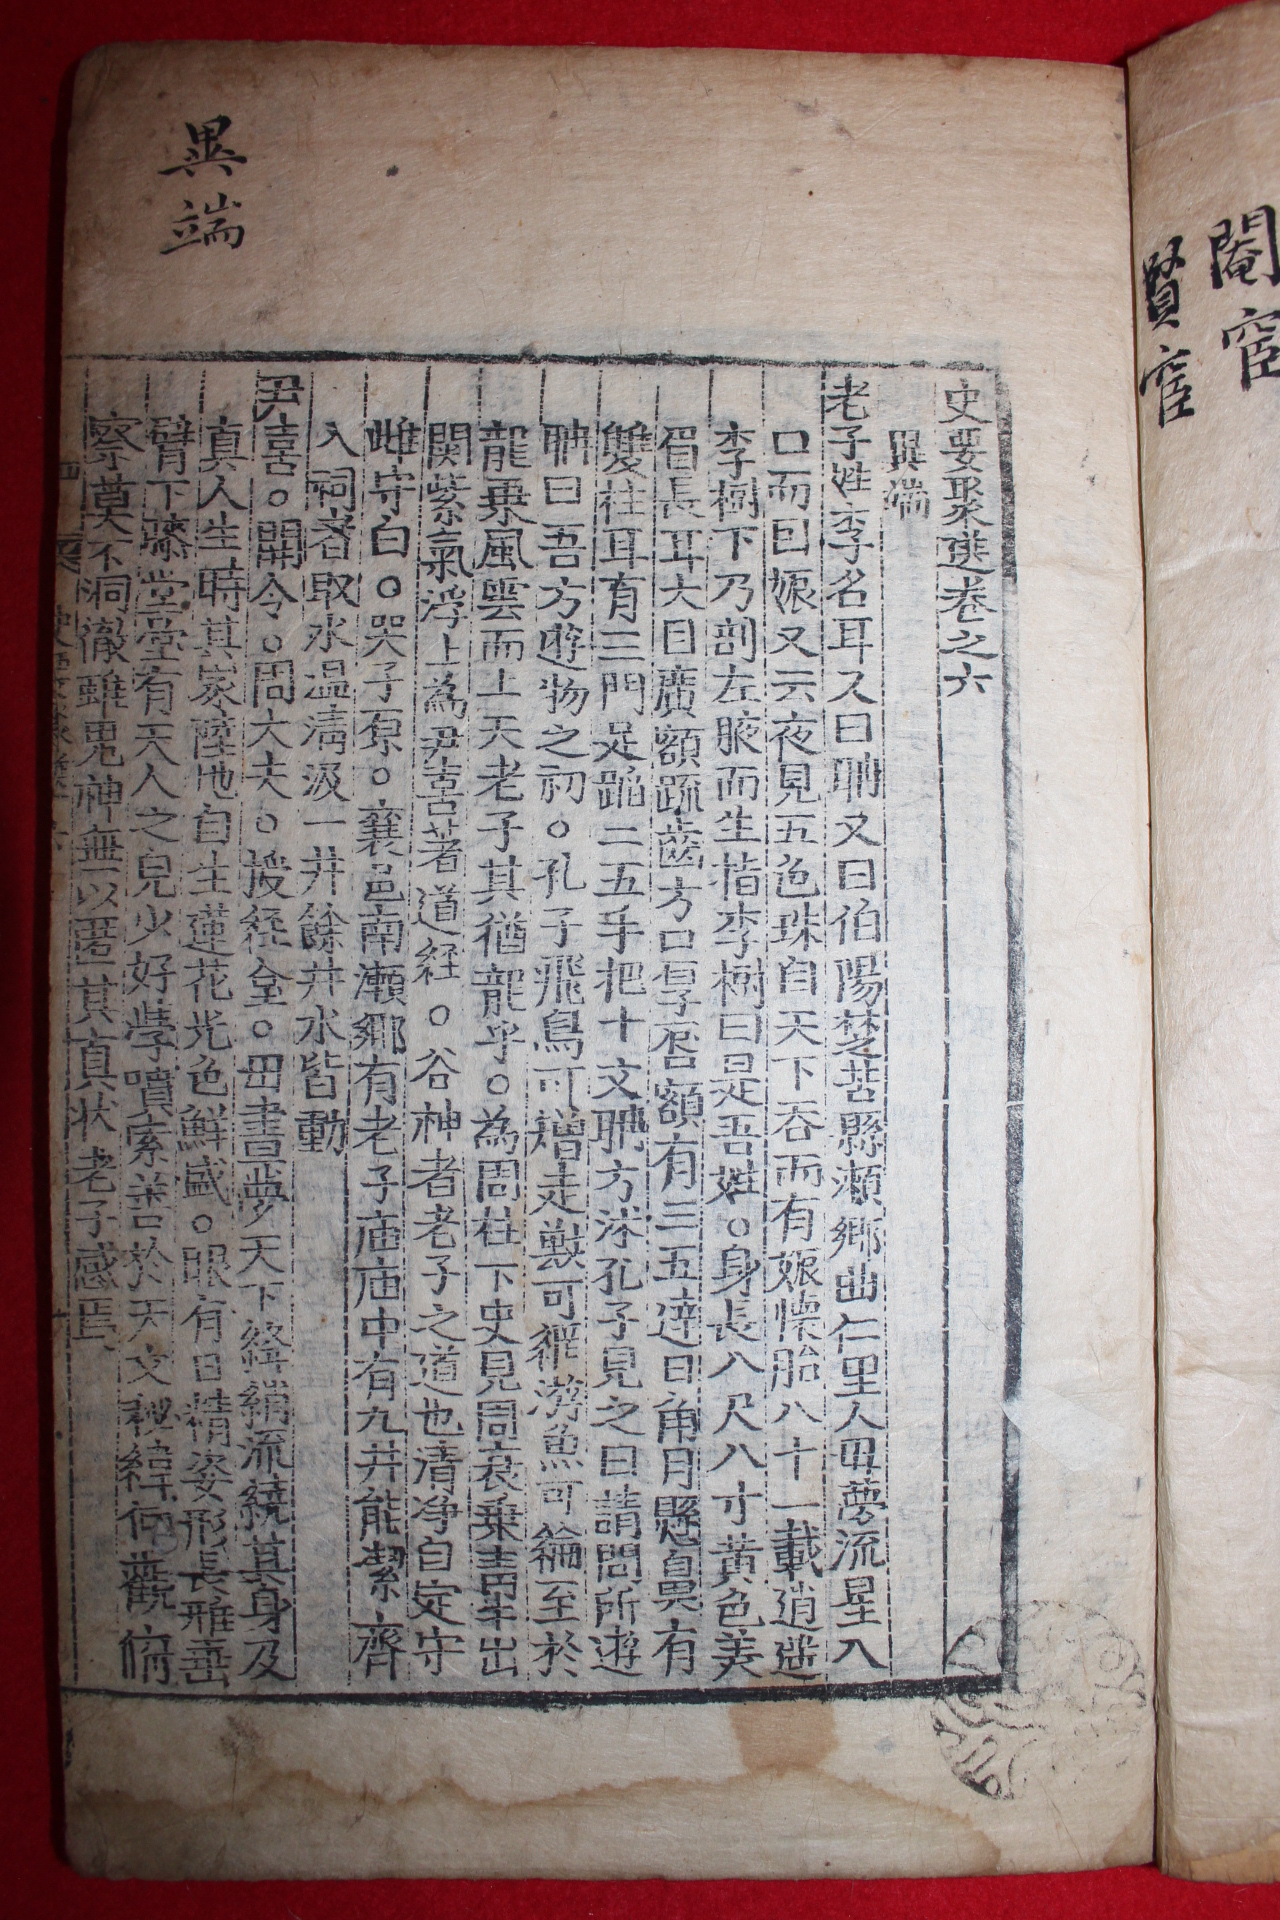 閹宦
賢宦
異端
史要聚選卷之六
異端
老子姓李名耳又曰聃又曰伯陽楚苦縣瀬鄉曲仁里人毋夢流星入
口而曰娠又云夜見五色珠自天下吞而有娠懐胎八十一載逍遥
李樹下乃剖左腋而生指李樹曰是吾姓○身長八尺八寸黃色美
眉長耳大目廣額䟽齒方口厚唇額有三五逹日角月懸鼻有
雙柱耳有三門足蹈二五手把十文聃方沐孔子見之曰請問所遊
聃曰吾方遊物之初○孔子飛鳥可矰走獸可網游魚可綸至於
龍乗風雲而上天老子其猶龍乎○為周柱下史見周衰乗青牛出
關紫氣浮上為尹喜著道経○谷神者老子之道也清净自定守
雌守白○哭子原○襄邑南瀬鄉有老子庙庙中有九井能潔齊
入祠者取水温清汲一井餘井水皆動
尹喜○關令○周大夫○授経臺○毋晝夢天下絳綃流繞其身及
真人生時其家陸地自生蓮花光色鮮盛○眼有日精姿形長雅垂
臂下膝堂堂有天人之皃少好學墳索善於天文秘緯仰觀俯
察莫不洞徹雖鬼神無以匿其真状老子感焉